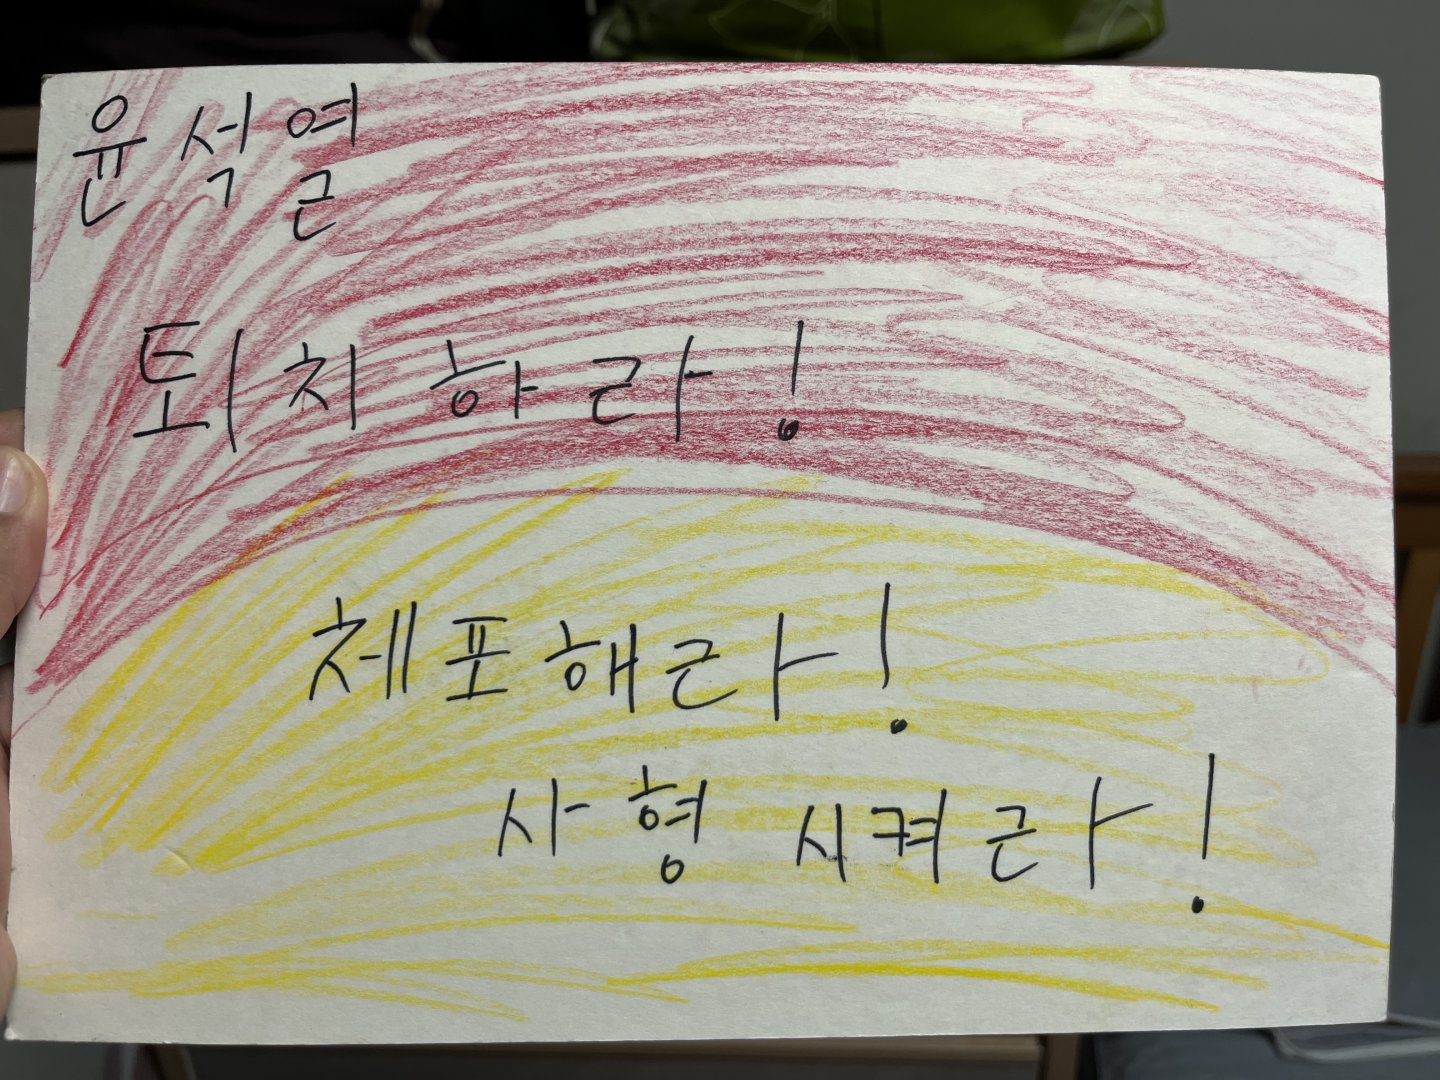 윤석열
퇴치하라!
체포해라!
사형 시켜라!